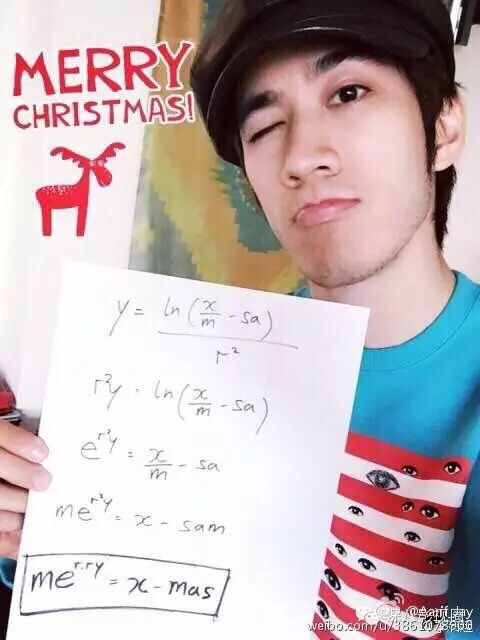 MERRY
CHRISTMAS!
y = ln(x/m - sa) / r²
r²y = ln(x/m - sa)
e^(r²y) = x/m - sa
me^(r²y) = x - sam
me^(r.ry) = x - mas